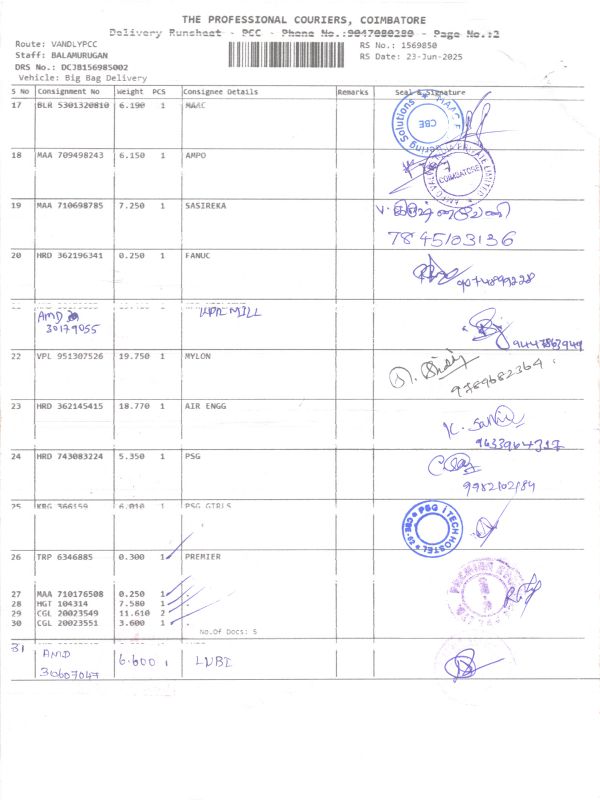 THE PROFESSIONAL COURIERS, COIMBATORE
Delivery Runsheet - PCC - Phone No.:9047080280 - Page No.:2
Route: VANDLYPCC
Staff: BALAMURUGAN
DRS No.: DCJB156985002
Vehicle: Big Bag Delivery
RS No.: 1569850
RS Date: 23-Jun-2025
S No Consignment No Weight PCS Consignee Details Remarks Seal & Signature
17 BLR 5301320810 6.190 1 MAAC
CBE
18 MAA 709498243 6.150 1 AMPO
COIMBATORE
19 MAA 710698785 7.250 1 SASIREKA
7845103136
20 HRD 362196341 0.250 1 FANUC
9074899228
AMD
30179055 KPR MILL
9447863949
22 VPL 951307526 19.750 1 MYLON
9789682364
23 HRD 362145415 18.770 1 AIR ENGG
9633964317
24 HRD 743083224 5.350 1 PSG
9982102184
25 KRG 366159 6.010 1 PSG GIRLS
PSG iTECH HOSTEL
26 TRP 6346885 0.300 1 PREMIER
27 MAA 710176508 0.250 1
28 MGT 104314 7.580 1
29 CGL 20023549 11.610 2
30 CGL 20023551 3.600 1
No.Of Docs: 5
31 AMD
30607047 6.600 1 LUBI